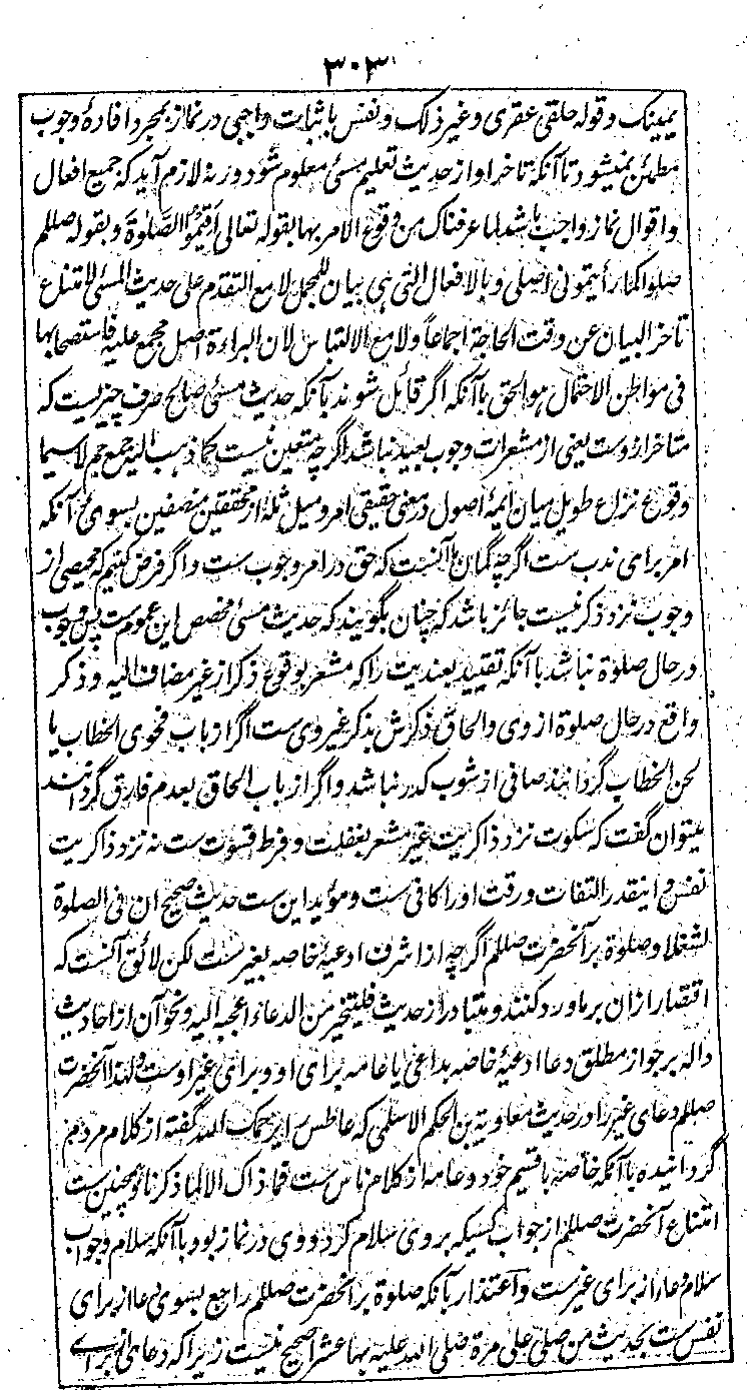 ۳۰۳
یمینک وقوله حلقی عقری وغیر ذلک ونفس باثبات واجبی در نماز بمجرد افادهٔ وجوب
مطمئن نمیشود تا آنکه تاخر او از حدیث تعلیم مسئ معلوم شود ورنه لازم آید که جمیع افعال
واقوال نماز واجب باشد لما عرفناک من وقوع الامر بها بقوله تعالی اقیموا الصلوة وبقوله صللم
صلوا کما رأیتمونی اصلی وبالافعال التی هی بیان للمجمل لا مع التقدم علی حدیث المسئ لامتناع
تاخر البیان عن وقت الحاجة اجماعاً ولا مع الالتباس لان البراءة اصل مجمع علیه فاستصحابها
فی مواطن الاحتمال هو الحق با آنکه اگر قائل شوند بآنکه حدیث مسئ صالح صرف چیزیست که
متاخر ازوست یعنی از مشعرات وجوب بعید نباشد اگرچه متعین نیست کما ذهب الیه جمع جم لاسیما
وقوع نزاع طویل میان ایمهٔ اصول در معنی حقیقی امر ومیل ثلهٔ از محققین منصفین بسوی آنکه
امر برای ندب ست اگرچه گمان ما آنست که حق در امر وجوب ست واگر فرض کنیم که محیصی از
وجوب نزد ذکر نیست جائز باشد که چنان بگویند که حدیث مسئ مخصص این عموم ست پس وجوب
در حال صلوة نباشد با آنکه تقیید بعندیت را که مشعر بوقوع ذکر از غیر مضاف الیه وذکر
واقع در حال صلوة از وی والحاق ذکرش بذکر غیر وی ست اگر از باب فحوی الخطاب یا
لحن الخطاب گردانند صافی از شوب کدر نباشد واگر از باب الحاق بعدم فارق گردانند
میتوان گفت که سکوت نزد ذاکریت غیر مشعر بغفلت وفرط قسوت ست نه نزد ذاکریت
نفس واینقدر التفات ورقت اورا کافی ست ومؤید این ست حدیث صحیح ان فی الصلوة
لشغلا وصلوة بر آنحضرت صللم اگرچه از اشرف ادعیهٔ خاصه بغیرست لکن لائق آنست که
اقتصار ازان بر ماورد کنند ومتبادر از حدیث فلیتخیر من الدعاء اعجبه الیه ونحو آن از احادیث
داله بر جواز مطلق دعا ادعیهٔ خاصه بداعی یا عامه برای او وبرای غیر اوست ولهذا آنحضرت
صللم دعای غیر را در حدیث معاویة بن الحکم الاسلمی که عاطس را یرحمک الله گفته از کلام مردم
گردانیده با آنکه خاصه با قسیم خود وعامه از کلام ناس ست فما ذاک الا لما ذکرنا وهمچنین ست
امتناع آنحضرت صللم از جواب کسیکه بر وی سلام کرد ووی در نماز بود با آنکه سلام وجواب
سلام دعا از برای غیرست واعتذار بآنکه صلوة بر آنحضرت صللم راجع بسوی دعا از برای
نفس ست بحدیث من صلی علی مرة صلی الله علیه بها عشرا صحیح نیست زیرا که دعای برای